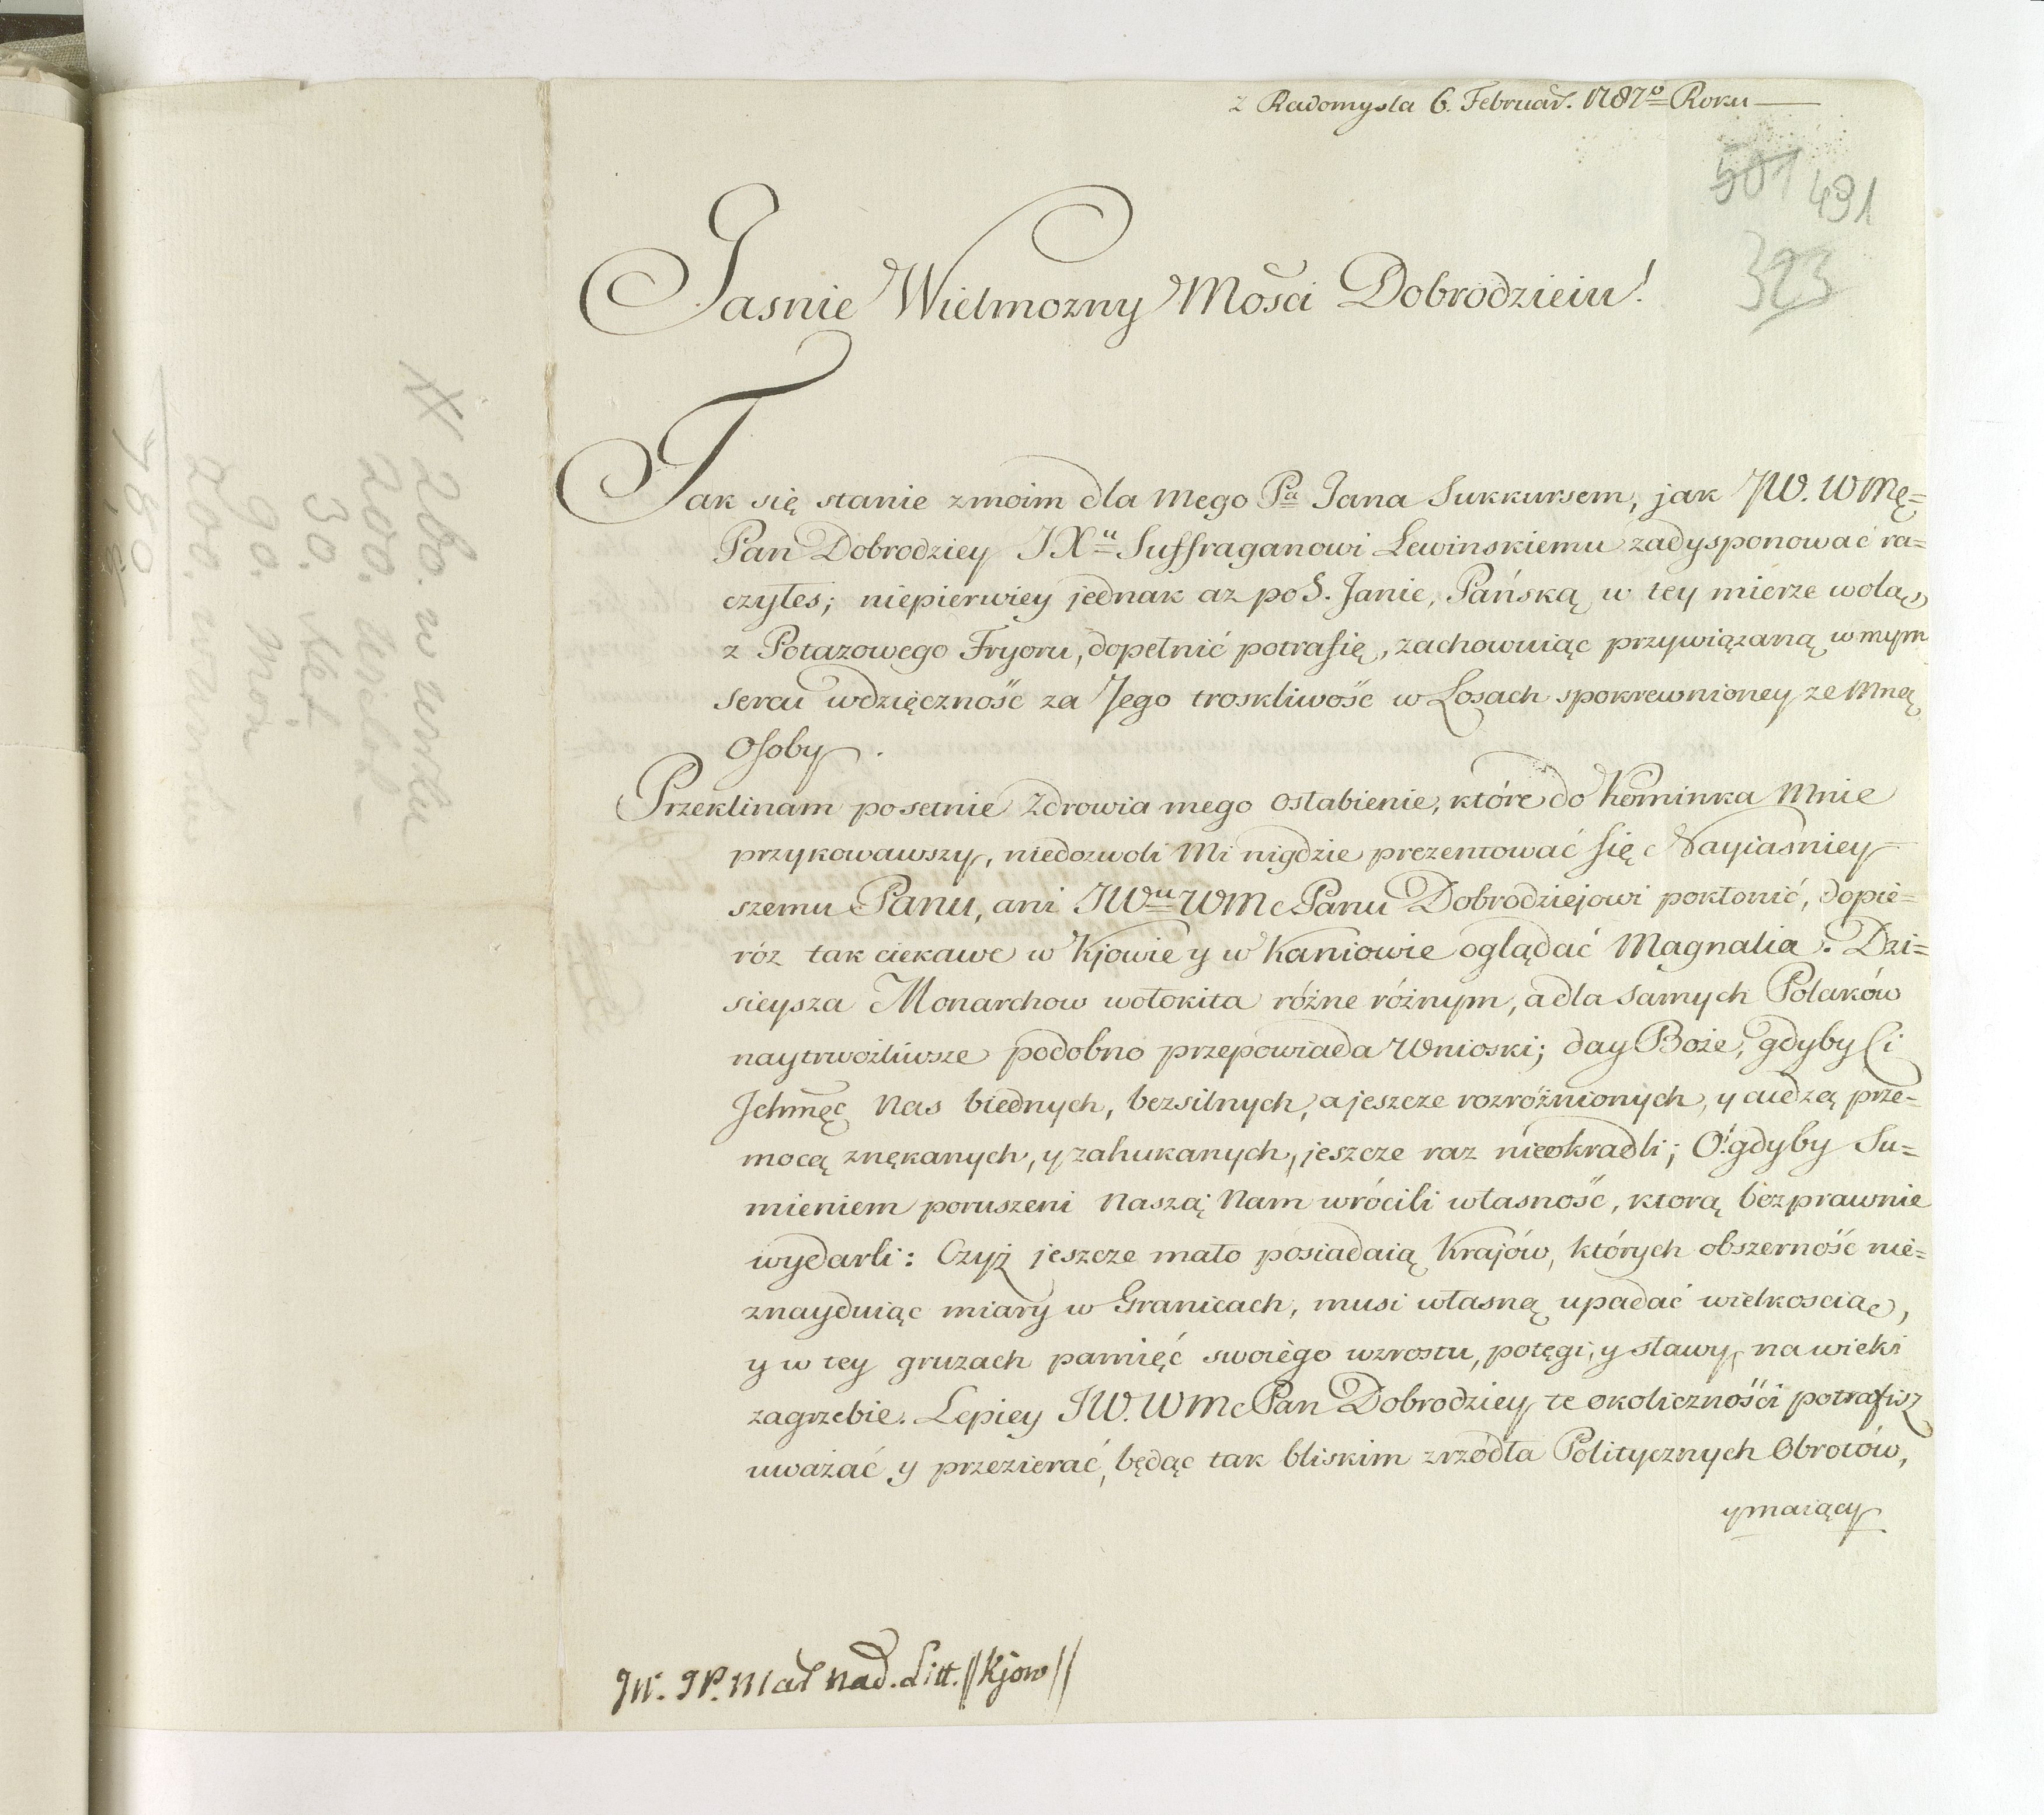 z Radomysla 6. Februar. 1787º Roku
501 491
323
Jasnie Wielmozny Mości Dobrodzieiu!
Tak się stanie z moim dla mego Pa Jana Sukkursem, jak JW. WMę=
Pan Dobrodziey JXu Suffraganowi Lewinskiemu zadysponować ra=
czyłes; niepierwiey jednak az po S. Janie, Pańską w tey mierze wolą,
z Potazowego Fryoru, dopełnić potrafię, zachowuiąc przywiązaną w mym
sercu wdzięczność za Jego troskliwość w Losach spokrewnioney ze Mną
Osoby.
Przeklinam posetnie Zdrowia mego osłabienie, które do Kominka Mnie
przykowawszy, niedozwoli Mi nigdzie prezentować się Nayiasniey
szemu Panu, ani JWu WMc Panu Dobrodziejowi pokłonić, dopie=
róz tak ciekawe w Kjowie y w Kaniowie oglądać Magnalia. Dzi=
sieysza Monarchow wołokita różne różnym, a dla samych Polaków
naytrwożliwsze podobno przepowiada Wnioski; day Boże, gdyby Ci
Jchmęć Nas biednych, bezsilnych, a jeszcze rozróżnionych, y cudzą prze-
mocą znękanych, y zahukanych, jeszcze raz nieokradli; O! gdyby Su=
mieniem poruszeni Naszą Nam wrócili własność, ktorą bezprawnie
wydarli: Czyż jeszcze mało posiadaią Krajów, których obszerność nie=
znayduiąc miary w Granicach, musi własną upadać wielkoscią,
y w tey gruzach pamięć swoiégo wzrostu, potęgi, y sławy, na wieki
zagrzebie. Lepiey JW. WMc Pan Dobrodziey te okoliczności potrafisz
uważać y przezierać, będąc tak bliskim zrzódła Politycznych Obrotów,
y maiący
JW. JP. Mał Nad. Litt. // Kjow //
# 200. w
200.
30.
90.
200.